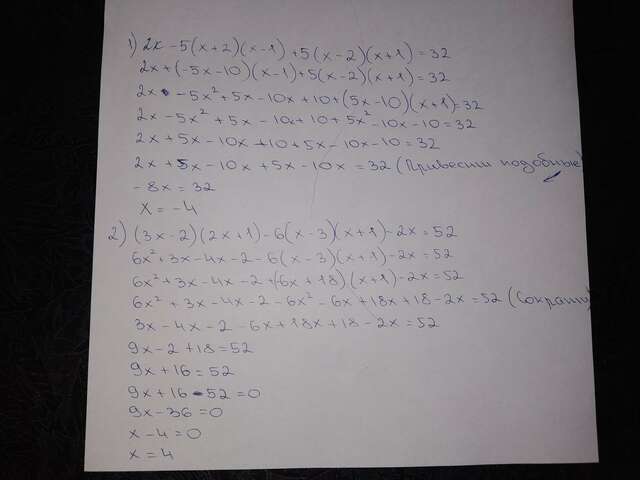 1) 2x - 5(x+2)(x-1) + 5(x-2)(x+1) = 32
2x + (-5x-10)(x-1) + 5(x-2)(x+1) = 32
2x - 5x² + 5x - 10x + 10 + (5x-10)(x+1) = 32
2x - 5x² + 5x - 10x + 10 + 5x² - 10x - 10 = 32
2x + 5x - 10x + 10 + 5x - 10x - 10 = 32
2x + 5x - 10x + 5x - 10x = 32 (Привести подобные)
-8x = 32
x = -4
2) (3x-2)(2x+1) - 6(x-3)(x+1) - 2x = 52
6x² + 3x - 4x - 2 - 6(x-3)(x+1) - 2x = 52
6x² + 3x - 4x - 2 + (-6x + 18)(x+1) - 2x = 52
6x² + 3x - 4x - 2 - 6x² - 6x + 18x + 18 - 2x = 52 (Сократи)
3x - 4x - 2 - 6x + 18x + 18 - 2x = 52
9x - 2 + 18 = 52
9x + 16 = 52
9x + 16 - 52 = 0
9x - 36 = 0
x - 4 = 0
x = 4